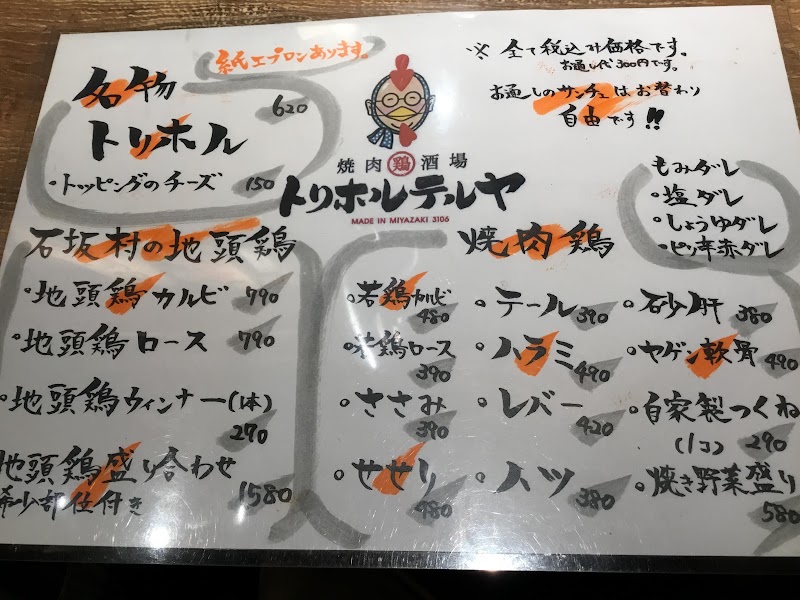 紙エプロンあります。
名物
トリホル
620
・トッピングのチーズ 150
焼肉 鶏 酒場
トリホルテルヤ
MADE IN MIYAZAKI 3106
※ 全て税込み価格です。
お通し代300円です。
お通しのサンチュはお替わり
自由です!!
もみダレ
・塩ダレ
・しょうゆダレ
・ピリ辛赤ダレ
石坂村の地頭鶏
・地頭鶏カルビ 790
・地頭鶏ロース 790
・地頭鶏ウィンナー(1本)
290
地頭鶏盛り合わせ
希少部位付き 1580
焼肉鶏
・若鶏カルビ
480
・若鶏ロース
390
・ささみ
390
・せせり
480
・テール 390
・ハラミ
490
・レバー
420
・ハツ
380
・砂肝 380
・ヤゲン軟骨
490
・自家製つくね
(1コ) 290
・焼き野菜盛り
580